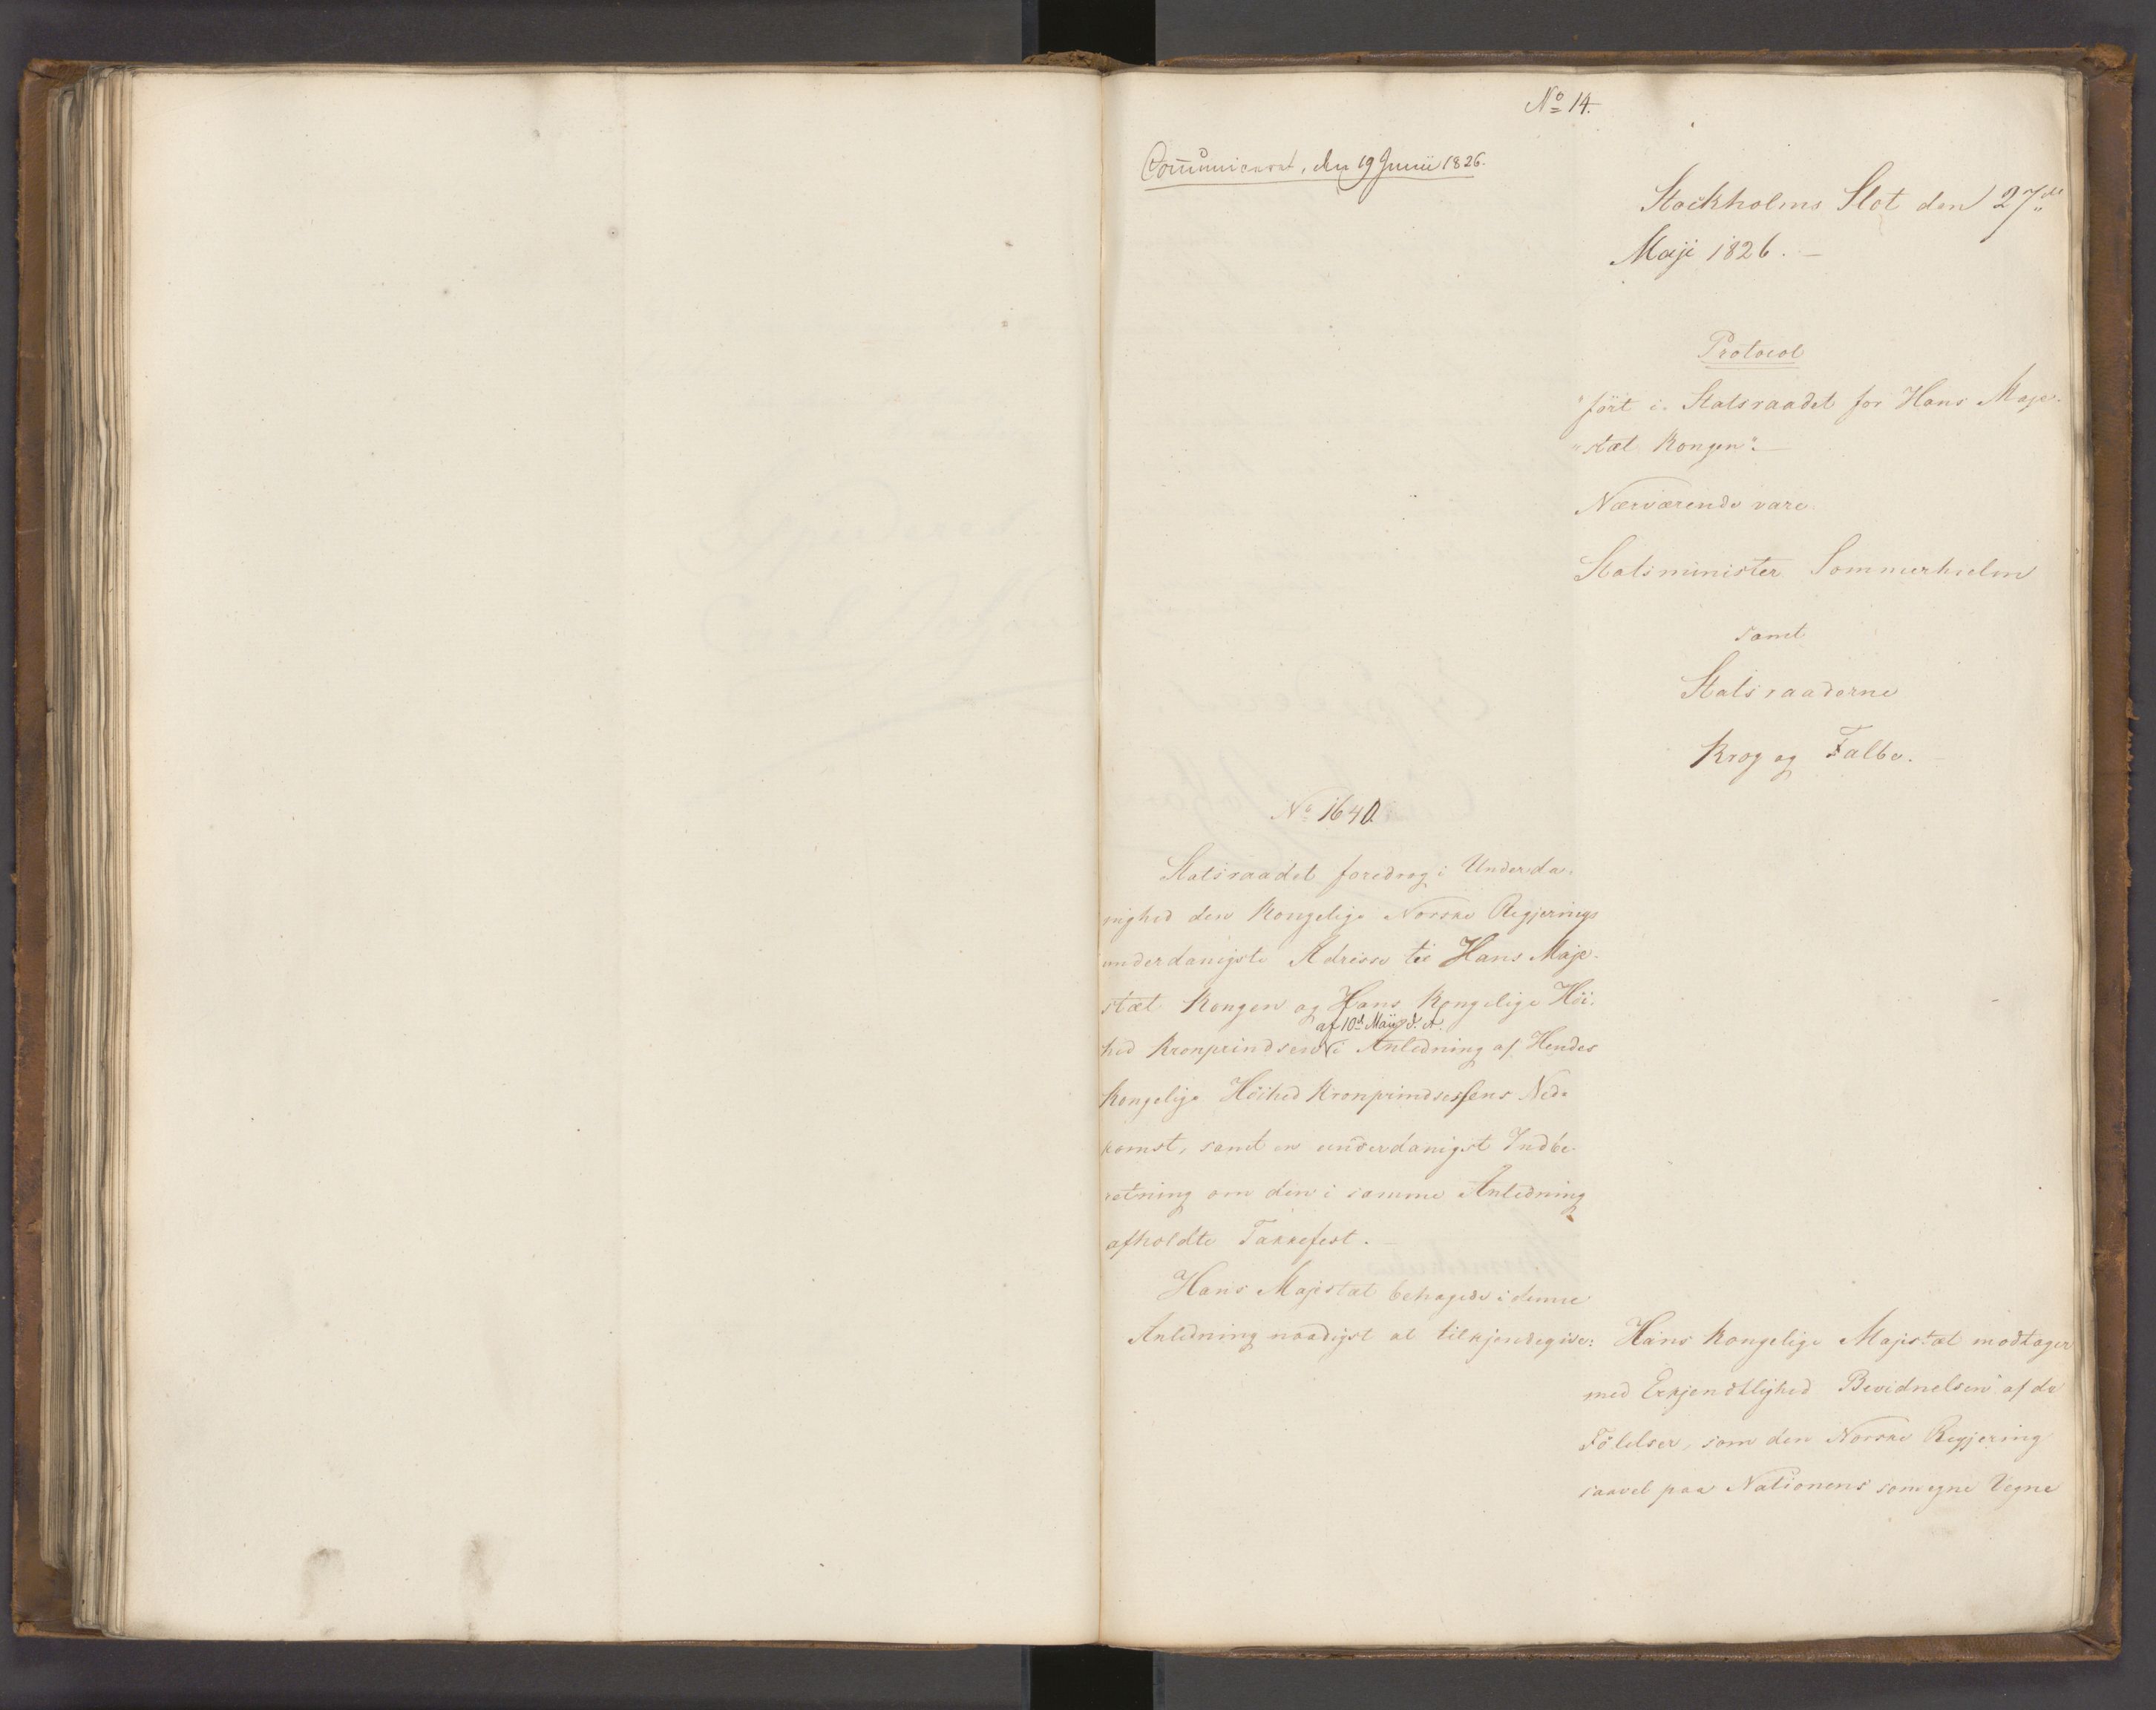 No 14.
Communicerat, den 19 Junii 1826.
Stockholms Slot den 27de
Maji 1826. —
Protocol
"fört i Statsraadet for Hans Maje-
"stæt Kongen". —
Nærværende vare
Statsminister Sommerhielm
samt
Statsraaderne
Krog og Falbe. —
No 1640.
Statsraadet foredrog i Underda-
nighed den Kongelige Norske Regjerings
underdanigste Adresse til Hans Maje-
stæt Kongen og Hans Kongelige Höi-
af 10de Maji d. A.
hed Kronprindsen i Anledning af Hendes
Kongelige Höihed Kronprindsessens Ned-
komst, samt en underdanigst Indbe-
retning om den i samme Anledning
afholdte Takkefest. —
Hans Majestæt behagede i denne
Anledning naadigst at tilkjendegive:
Hans Kongelige Majestæt modtager
med Erkjendtlighed Bevidnelsen af de
Fölelser, som den Norske Regjering
saavel paa Nationens som egne Vegne